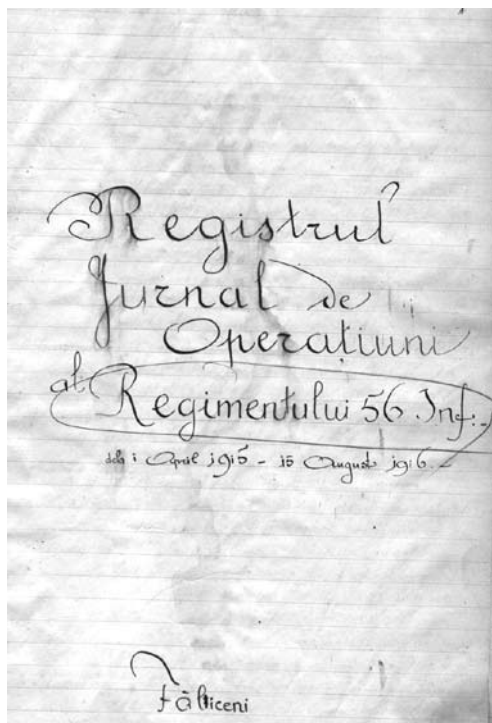 Registrul
Jurnal de
Operațiuni
al Regimentului 56 Inf:-
dela 1 April 1915 - 15 August 1916.-
Fălticeni